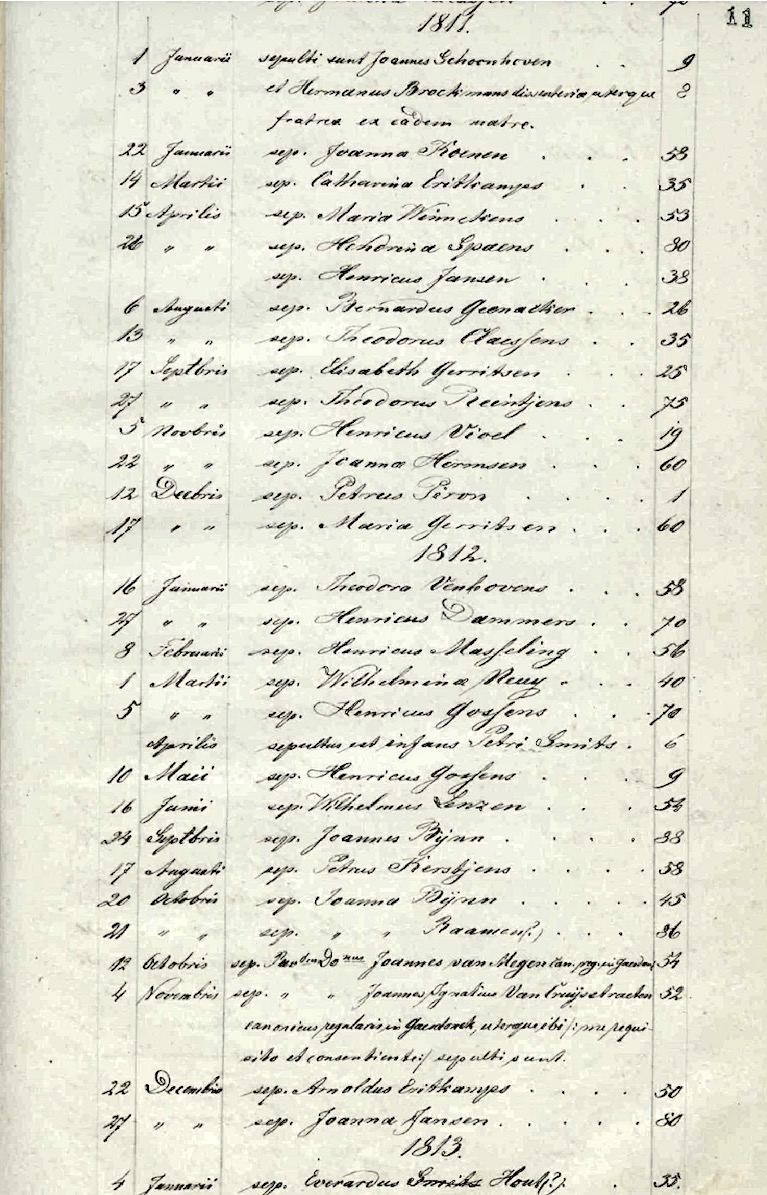 11
1811.
1 Januarii sepulti sunt Joannes Schoonhoven . . 9
3 " " et Hermanus Brockmans dissenteria uterque 8
fratres ex eadem matre.
22 Januarii sep. Joanna Koenen . . . 53
14 Martii sep. Catharina Eritkamps . . . 35
15 Aprilis sep. Maria Winnekens . . . 53
26 " " sep. Hendrina Spaens . . . 80
sep. Henricus Jansen . . . 38
6 Augusti sep. Bernardus Geenacker . . . 26
13 " " sep. Theodorus Claessens . . 35
17 Septbris sep. Elisabeth Gerritsen . . . 25
27 " " sep. Theodorus Reintjens . . . 75
5 Novbris sep. Henricus Vivel . . . 19
22 " " sep. Joanna Hermsen . . . 60
12 Decbris sep. Petrus Piron . . . . 1
17 " " sep. Maria Gerritsen . . . 60
1812.
16 Januarii sep. Theodora Venhovens . . . 58
27 " " sep. Henricus Dammers . . . 70
8 Februarii sep. Henricus Masseling . . . 56
1 Martii sep. Wilhelmina . . . 40
5 " " sep. Henricus Gossens . . . 70
Aprilis sepultus est infans Petri Smits . 6
10 Maii sep. Henricus Gossens . . . 9
16 Junii sep. Wilhelmus Lenzen . . . 54
24 Septbris sep. Joannes Bijnn . . . . 38
17 Augusti sep. Petrus Kerstjens . . . 58
20 Octobris sep. Joanna Bijnn . . . . 45
21 " " sep. " " Raamen(?) . . . 86
12 Octobris sep. Do nus Joannes van Megen Can. reg. in Gaesdonc 54
4 Novembris sep. " " Joannes Ignatius Van Cruijsstraeten 52
canonicus regularis in Gaesdonck, uterque ibi /: me requi
sito et consentiente :/ sepulti sunt.
22 Decembris sep. Arnoldus Eritkamps . . . . 50
27 " " sep. Joanna Jansen . . . . 80
1813.
4 Januarii sep. Everardus Smits Hout(?) . . 35.